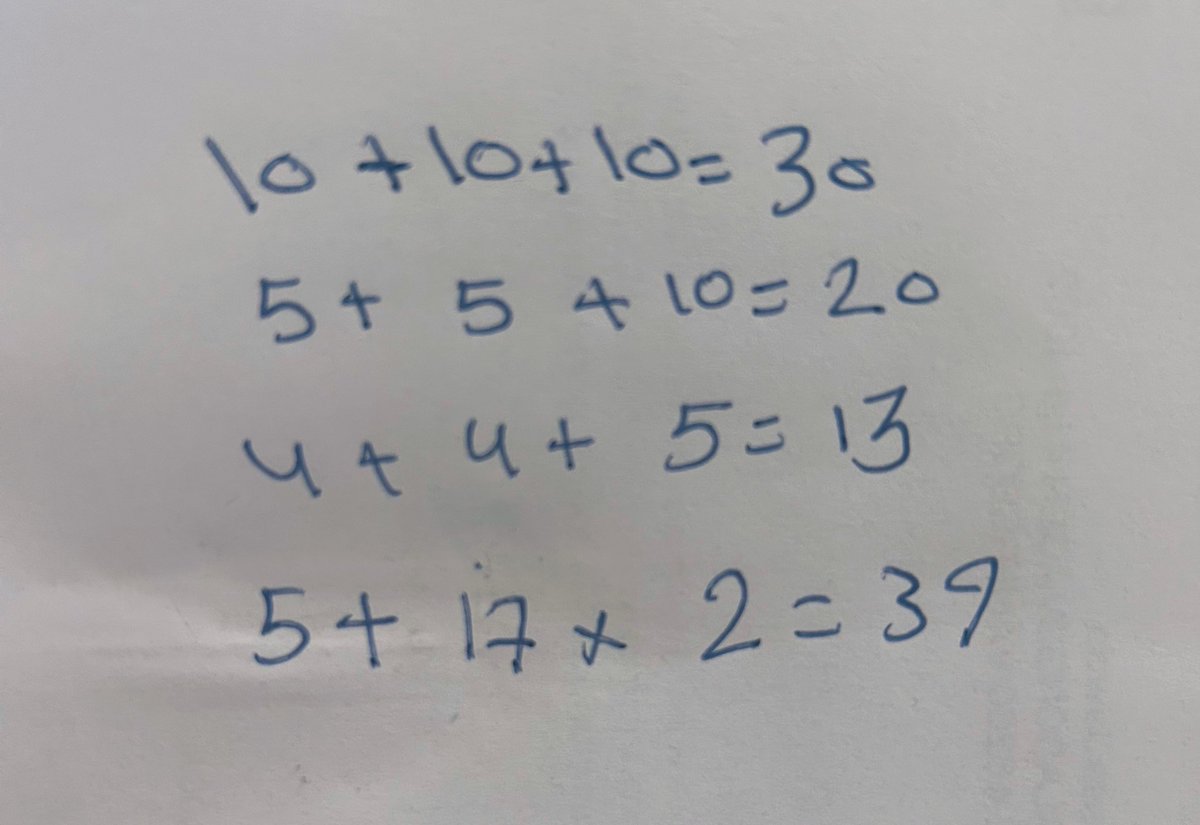 10 + 10 + 10 = 30
5 + 5 + 10 = 20
4 + 4 + 5 = 13
5 + 17 x 2 = 39